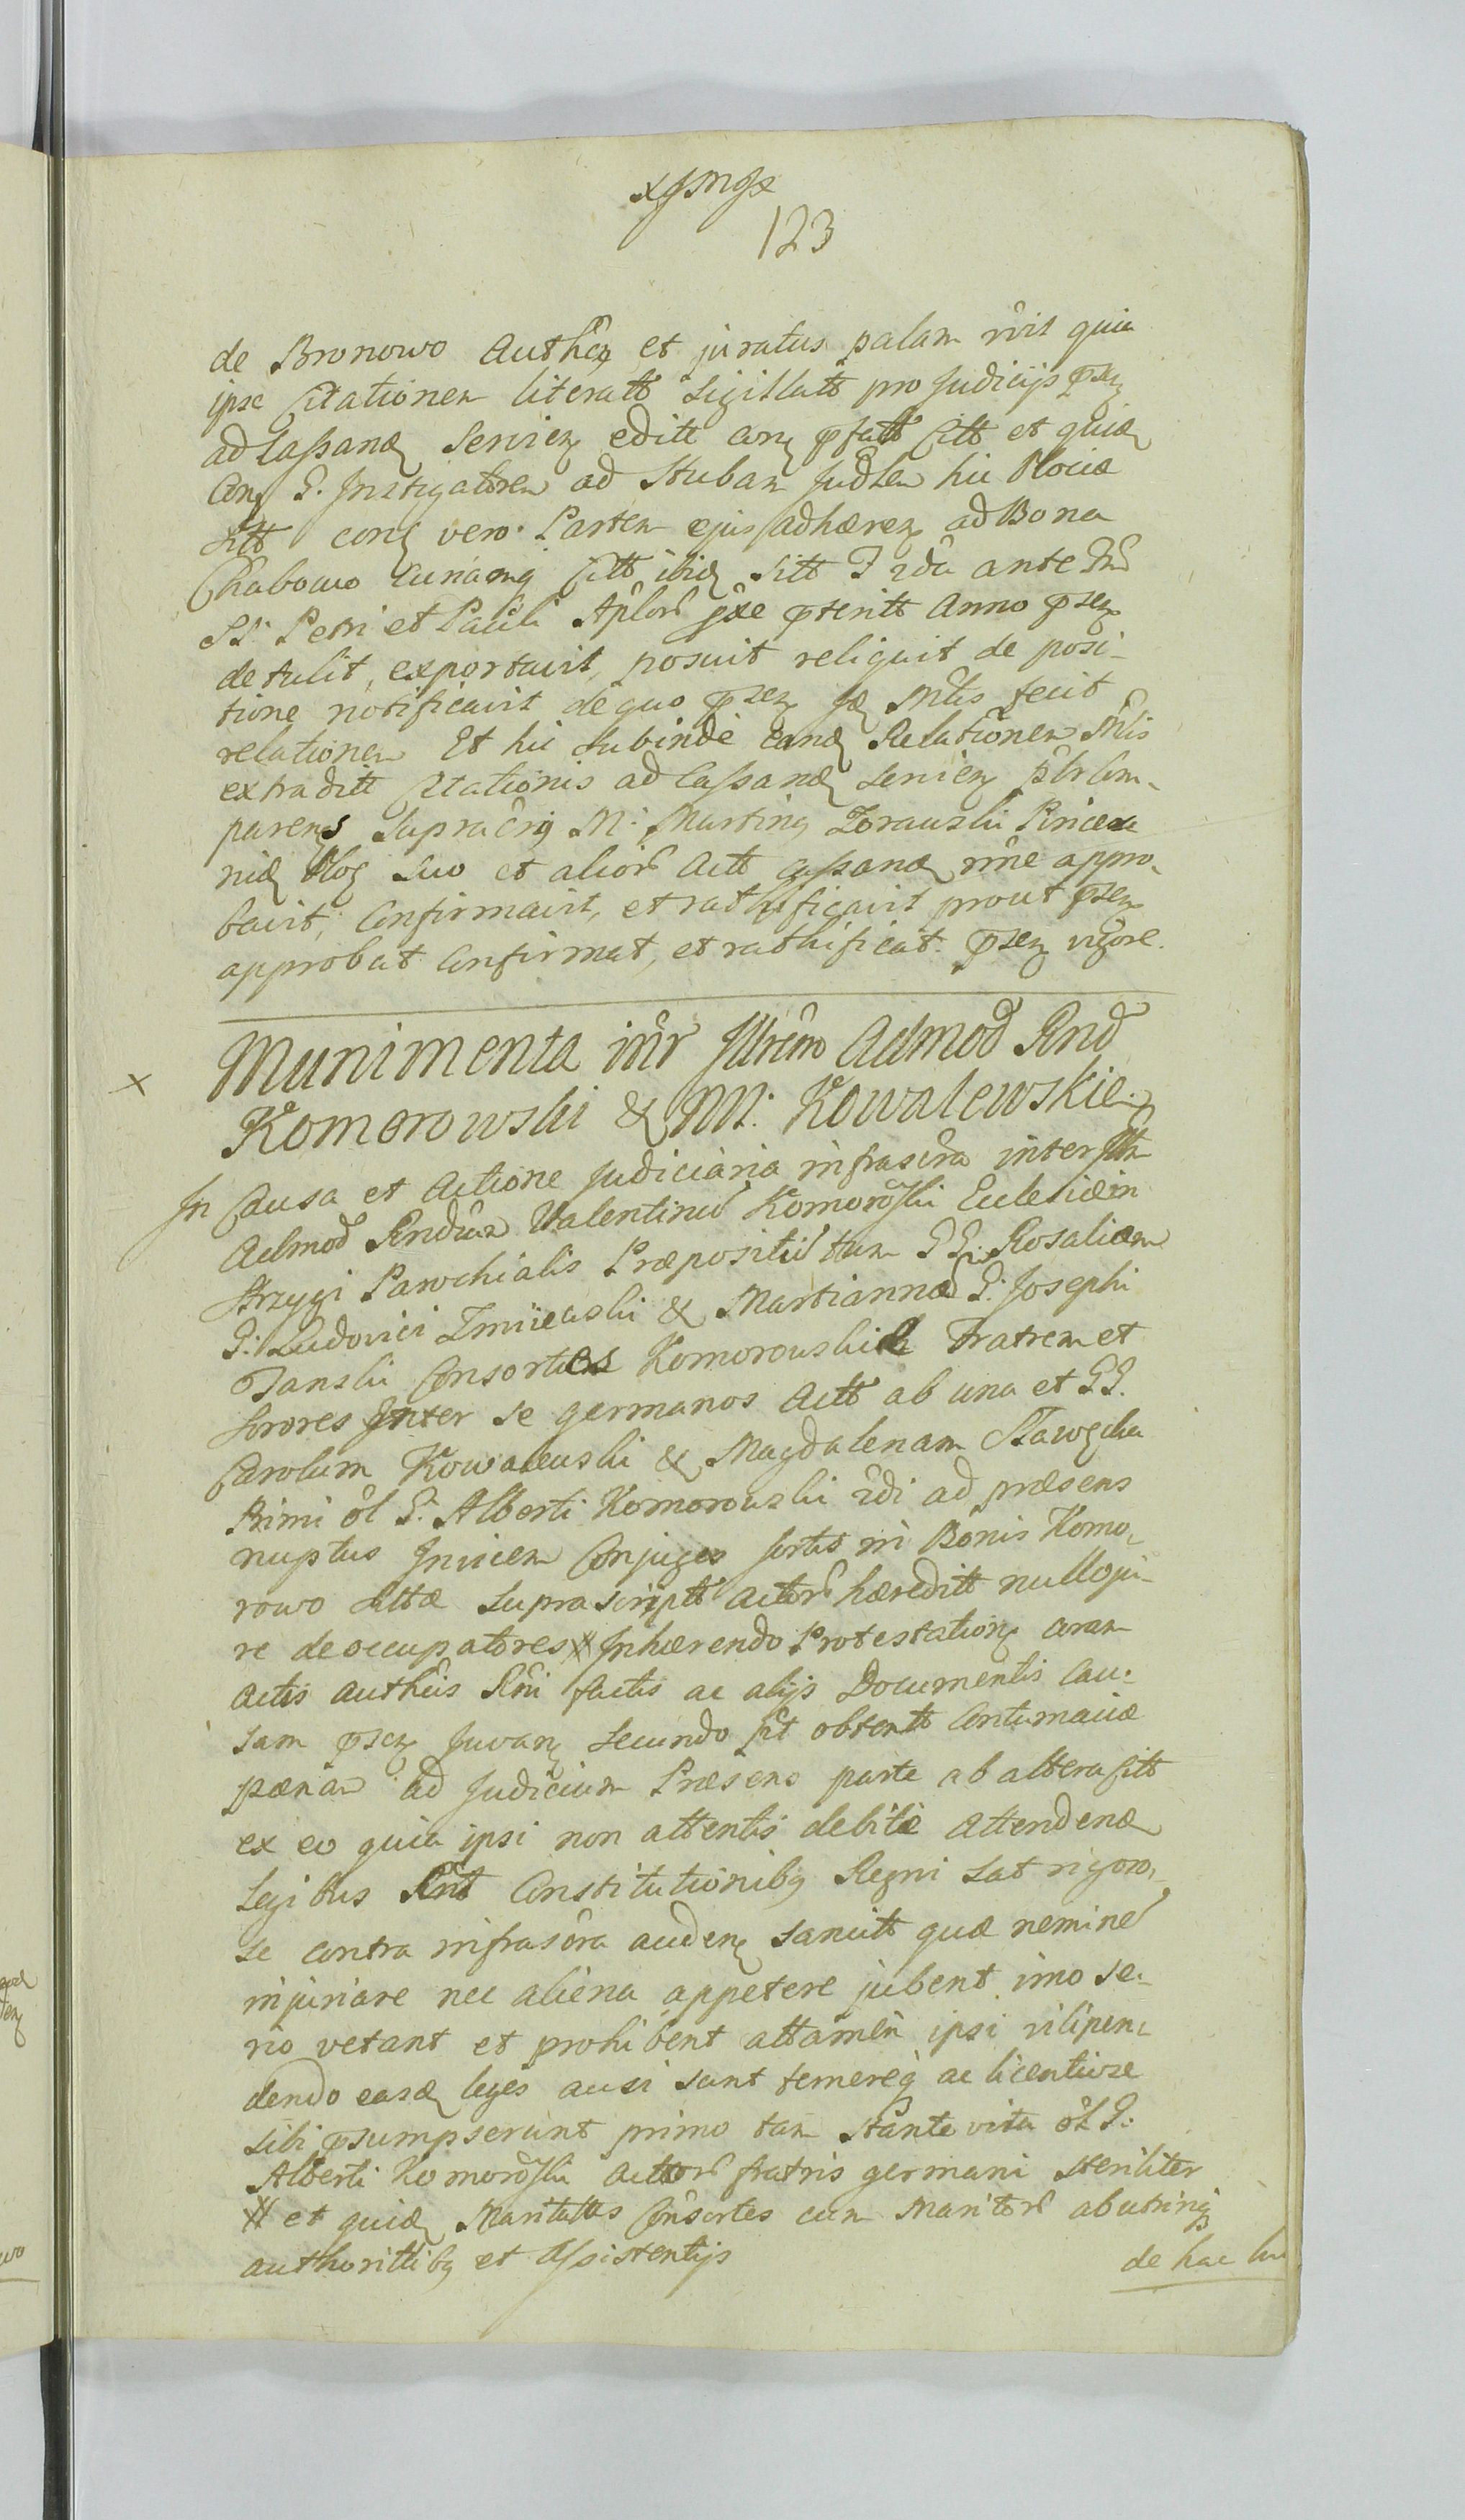 123
de Bronowo Authen et juratus palam rvit quia
ipse Citationem literatt Sigillatt pro Judicijs psen
ad Cassand Servien editt con pfatt Citt et quid
con G. Instigatorem ad Stubam Judlem hic Plociæ
Sitt con vero Partem ejus adhæren ad Bona
Chabowo Cunamq Citt ibid Sitt F 2da ante Fm
SS. Petri et Pauli Aplor pteritt Anno psen
detulit, exportavit, posuit reliquit de posi-
tione notificavit de quo psen se Mlis fecit
relationem Et hic Subinde eand Relationem Mlis
extraditt Citationis ad Cassand Servien plr Com-
parens Supracrig M. Martinq Zorawski
suo et alior Actt Cassand nne appro-
bavit, Confirmavit, et rathificavit prout psen
approbat Confirmat, et rathificat. psen vigore.
Munimenta intr Illrem Admod Rnd
Komorowski & MM. Kowalewskie
x
In Causa et Actione Judiciaria infrascra inter Illm
Admod Rndum Valentinu Komorowski Eclesiæ in
Strzygi Parochialis Præpositu tum GG. Rosaliam
G. Ludovici Zmiiewski & Martiannæ G. Josephi
Tanski Consortes Komorowskie Fratrem et
Sorores Inter se germanos Actt ab una et GG.
Carolum Kowalewski & Magdalenam
Primi ol G. Alberti Komorowski 2di ad præsens
nuptus Invicem Conjuges Sortis in Bonis Komo-
rowo Sittæ Suprascriptt Actor hæreditt nullo ju-
re deoccupatores # Inhærendo Protestation coram
actis authcis Rni factis ac alijs Documentis Cau-
sam psen Juvan Secundo pt obtentt Contumaciæ
pænam ad Judicium Præsens parte ab altera Citt
ex eo quia ipsi non attentis debite attendend
Legibus Rnt Constitutionibq Regni Sat rigoro-
se contra infrascra auden Sancitt quæ nemine
injuriare nec aliena appetere jubent imo se-
rio vetant et prohibent attamen ipsi vilipen-
dendo easd leges ausi sunt temereq ac licentiose
sibi psumpserunt primo tam stante vita ol G.
Alberti Komorowski Actor fratris germani steriliter
# et quid Maritatas Consortes cum Maritor ab utrinq
authorittibq et Assistentijs
de hac lu